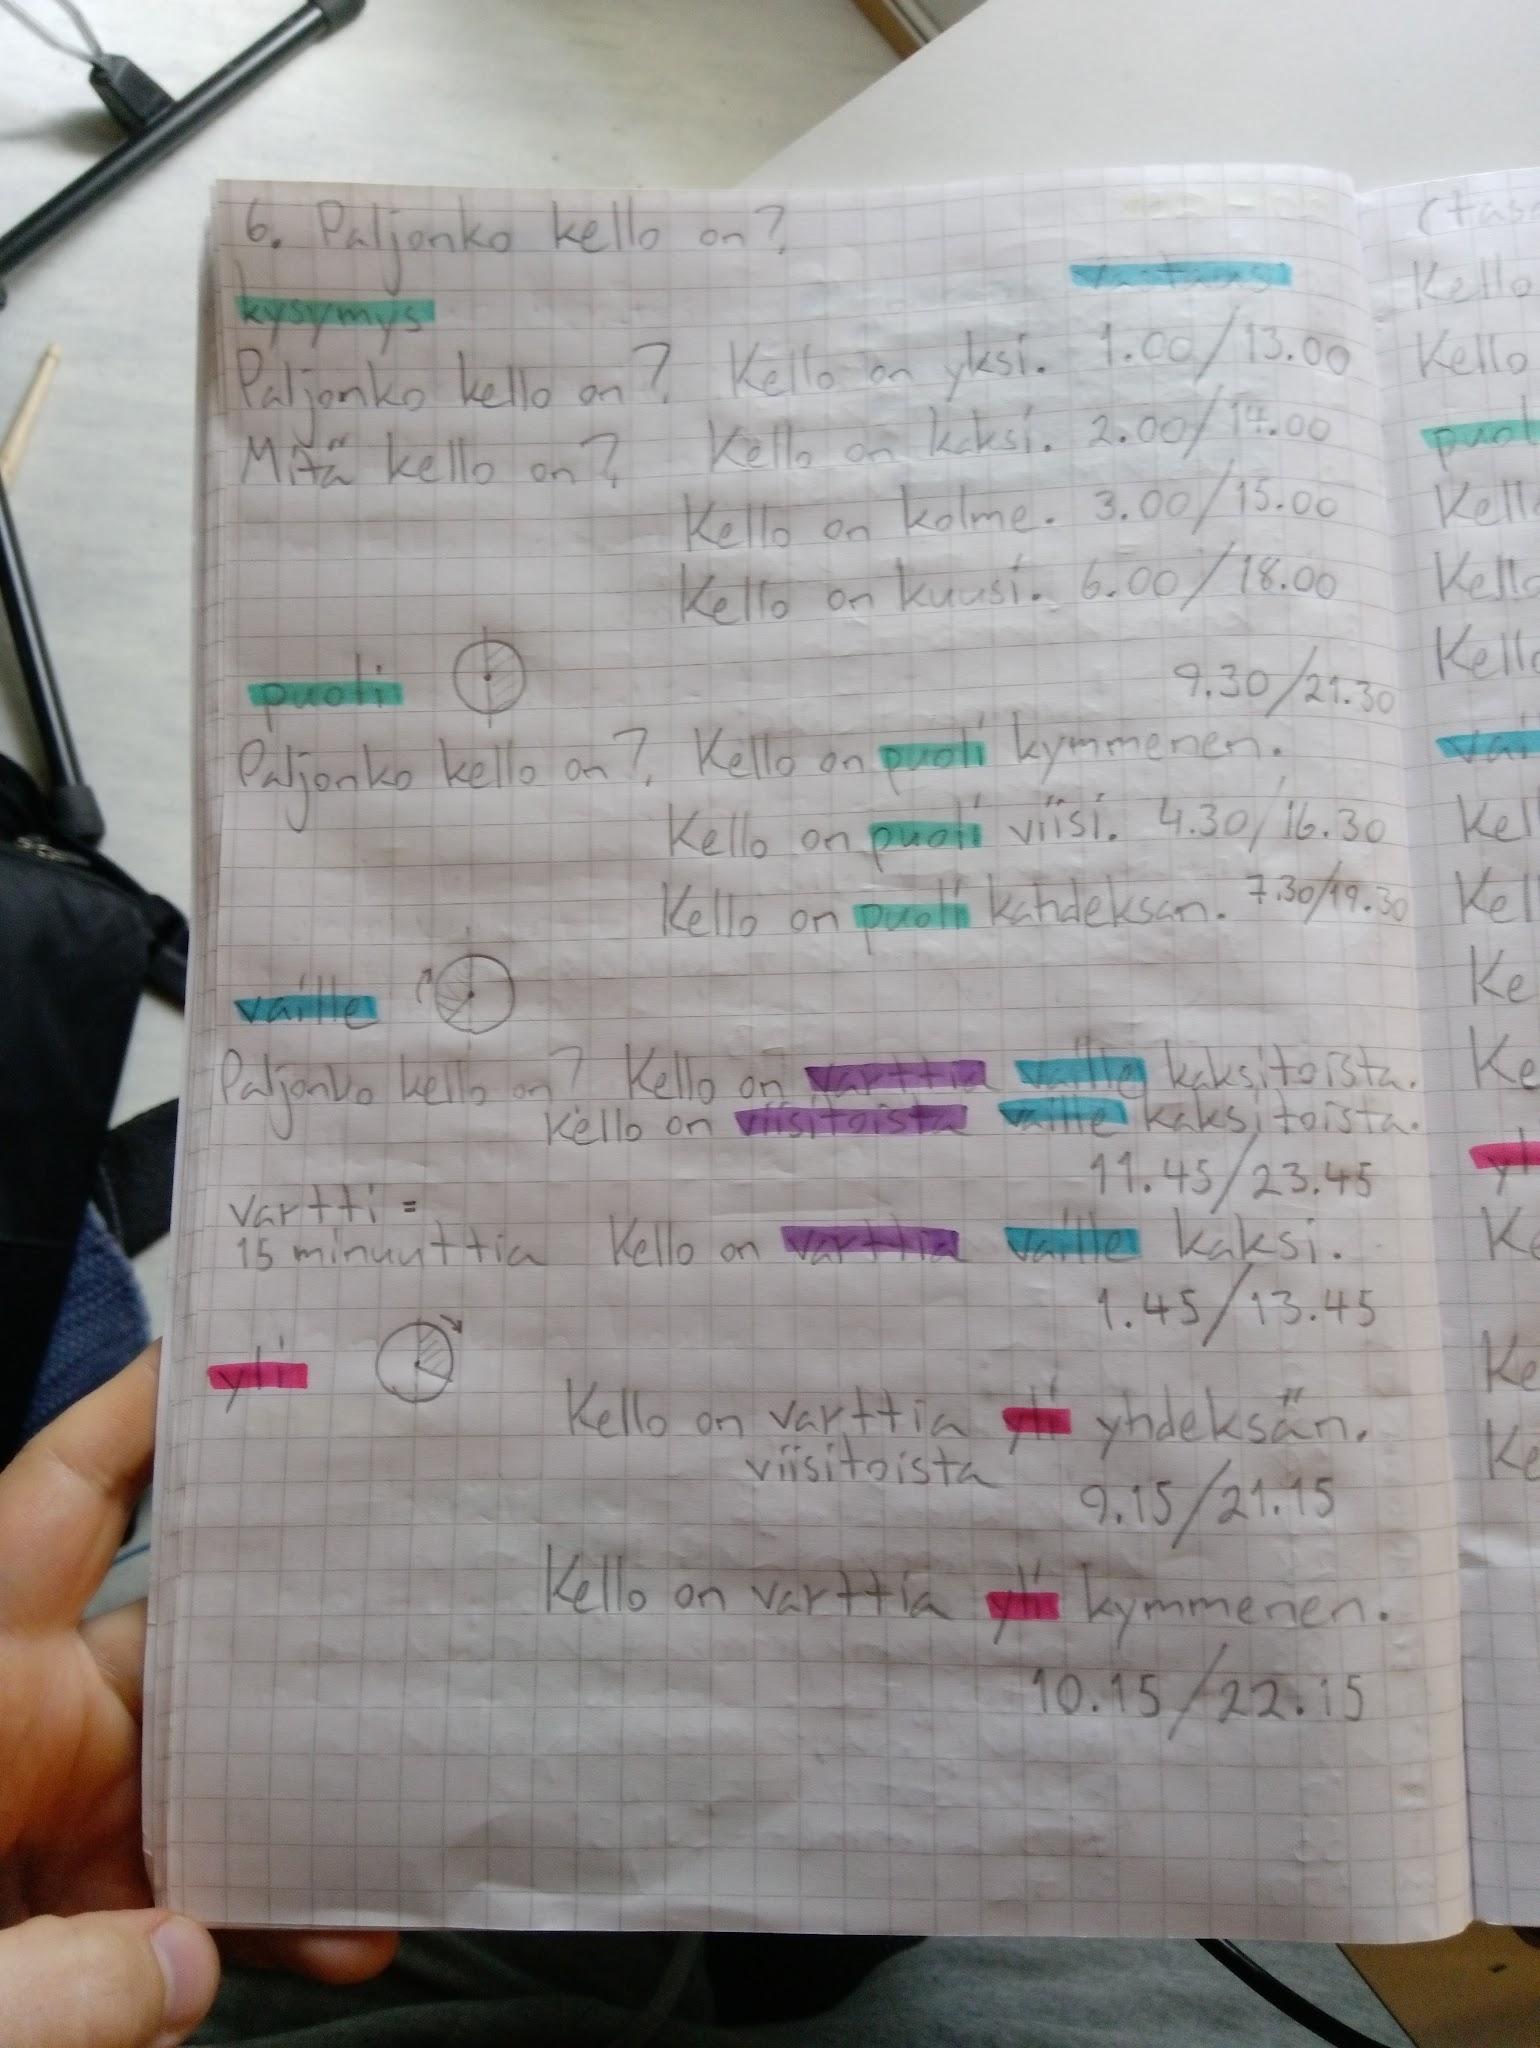 6. Paljonko kello on?
kysymys vastaus
Paljonko kello on? Kello on yksi. 1.00/13.00
Mitä kello on? Kello on kaksi. 2.00/14.00
Kello on kolme. 3.00/15.00
Kello on kuusi. 6.00/18.00
puoli
9.30/21.30
Paljonko kello on? Kello on puoli kymmenen.
Kello on puoli viisi. 4.30/16.30
Kello on puoli kahdeksan. 7.30/19.30
vaille
Paljonko kello on? Kello on varttia vaille kaksitoista.
Kello on viisitoista vaille kaksitoista.
11.45/23.45
vartti =
15 minuuttia Kello on varttia vaille kaksi.
1.45/13.45
yli
Kello on varttia yli yhdeksän.
viisitoista
9.15/21.15
Kello on varttia yli kymmenen.
10.15/22.15
Kello
Kello